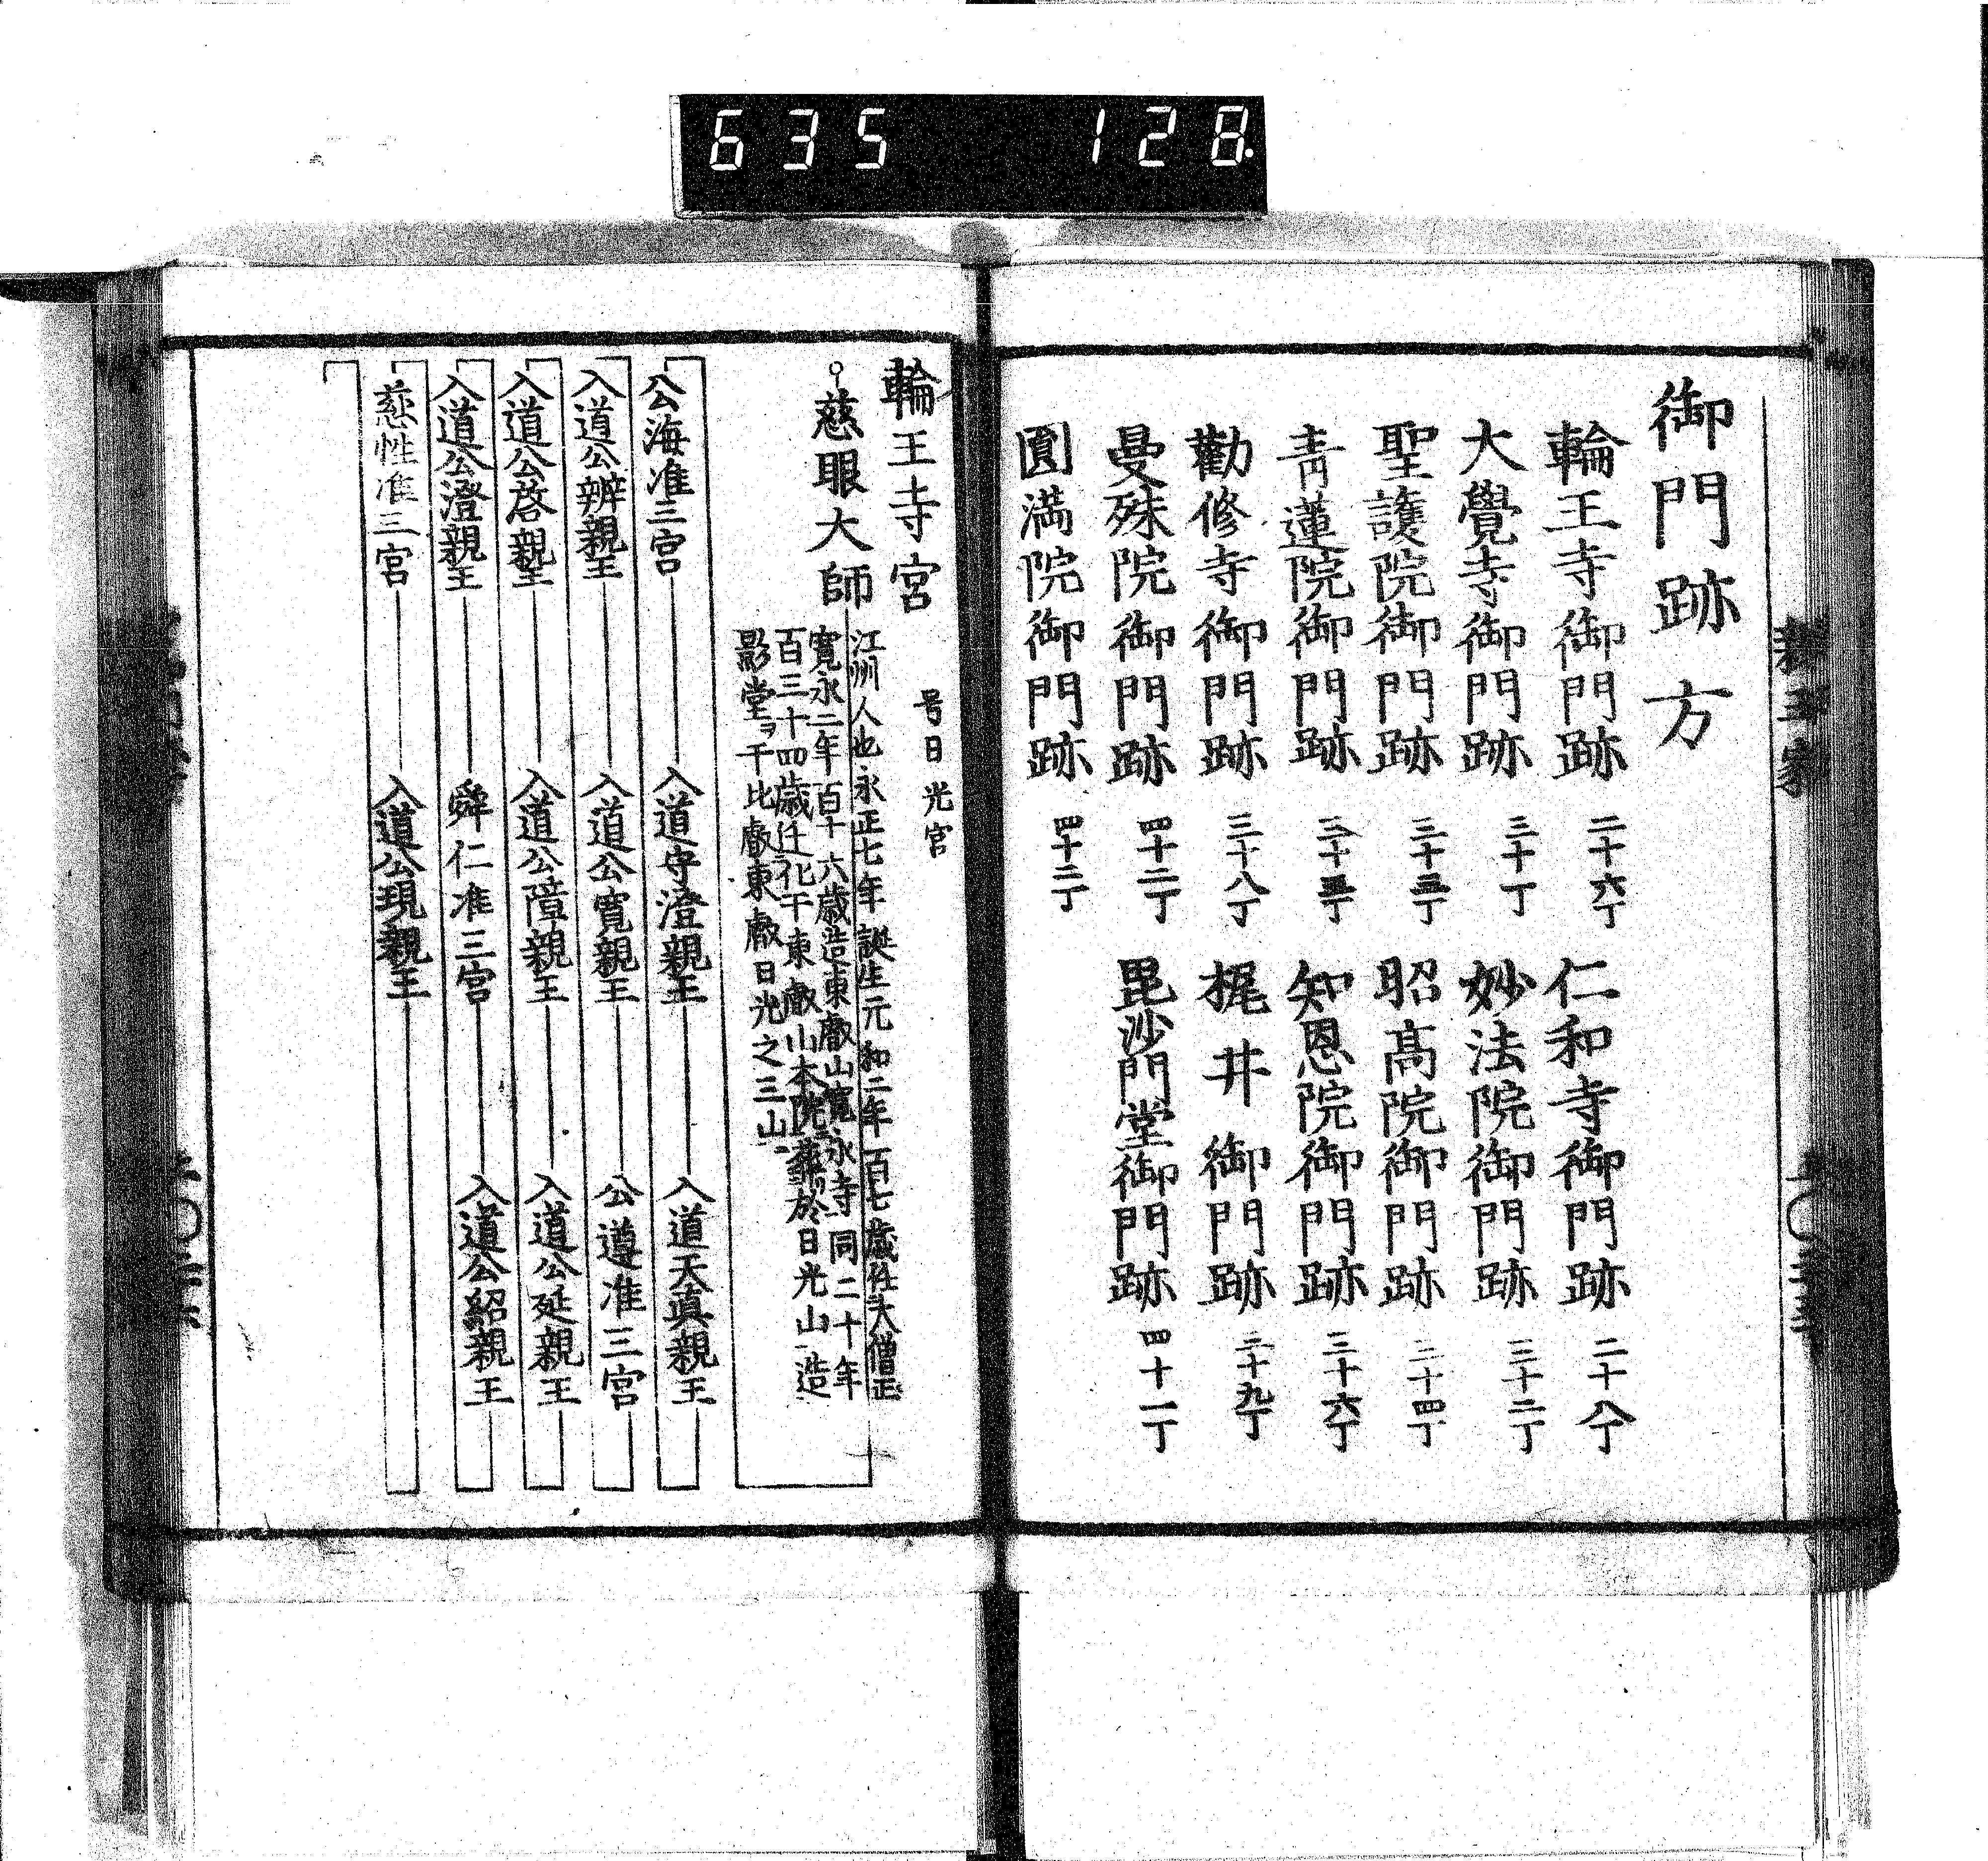 635 128.
御門跡方
輪王寺御門跡 二十六丁 仁和寺御門跡 二十八丁
大覺寺御門跡 三十丁 妙法院御門跡 三十二丁
聖護院御門跡 三十三丁 昭高院御門跡 三十四丁
青蓮院御門跡 知恩院御門跡 三十六丁
勸修寺御門跡 三十八丁 梶井御門跡 三十九丁
曼殊院御門跡 四十二丁 毘沙門堂御門跡 四十一丁
圓満院御門跡 四十二丁
輪王寺宮 号日光宮
慈眼大師
江州人也永正七年誕生元和二年百七歳任大僧正
寛永二年百十六歳造東叡山寛永寺同二十年
百三十四歳迁化于東叡山本院葬於日光山造
影堂ヲ于比叡東叡日光之三山
公海准三宮 入道守澄親王 入道天真親王
入道公辨親王 入道公寛親王 公遵准三宮
入道公啓親王 入道公障親王 入道公延親王
入道公澄親王 舜仁准三宮 入道公紹親王
慈性准三宮 入道公現親王